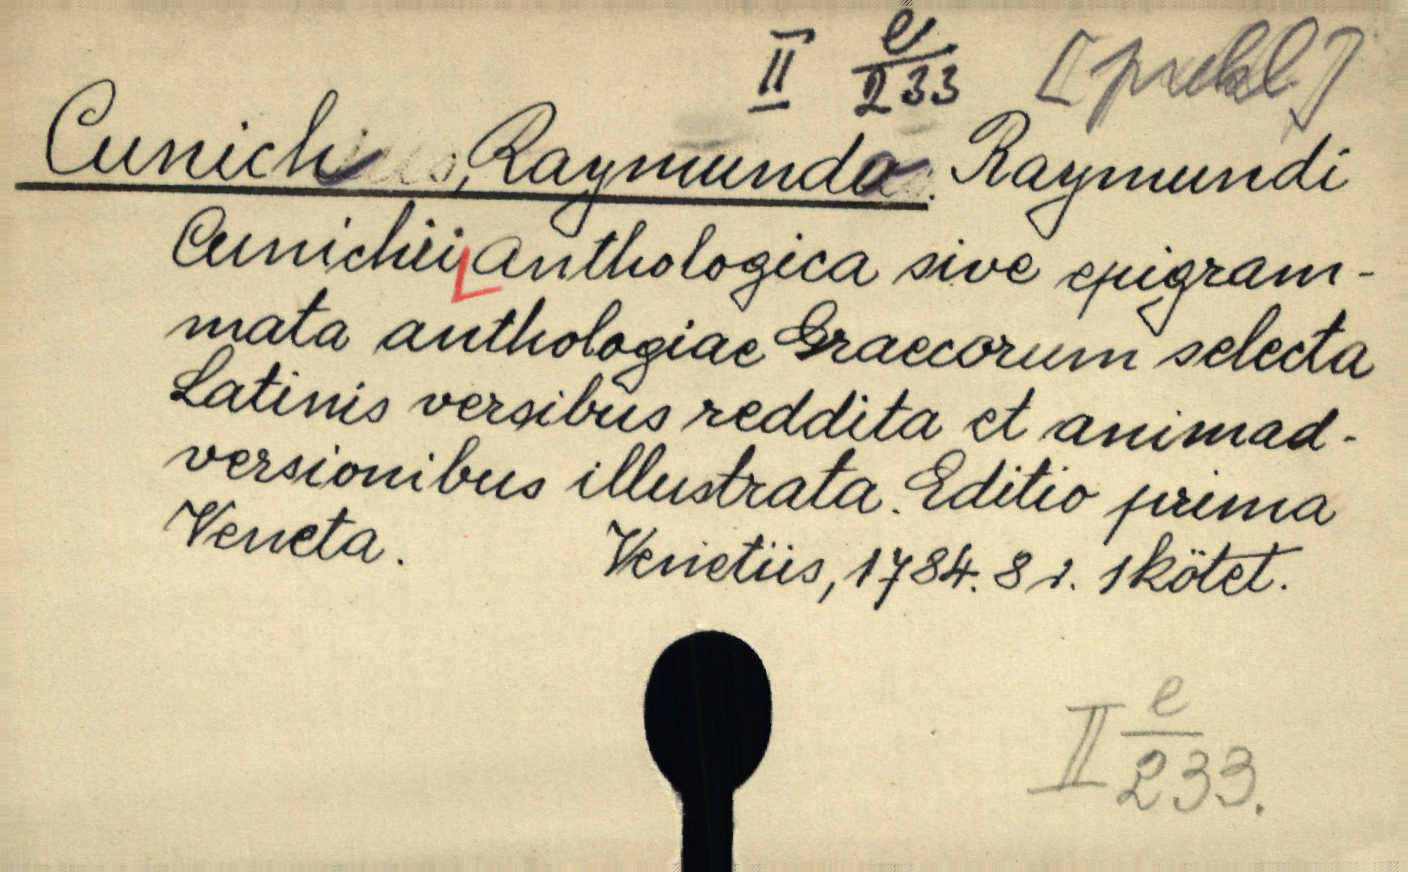 II e/233 [prekl.]
Cunich, Raymundo. Raymundi
Cunichii Anthologica sive epigram-
mata anthologiae Graecorum selecta
Latinis versibus reddita et animad-
versionibus illustrata. Editio prima
Veneta. Venetiis, 1784. 8 r. 1 kötet.
II e/233.